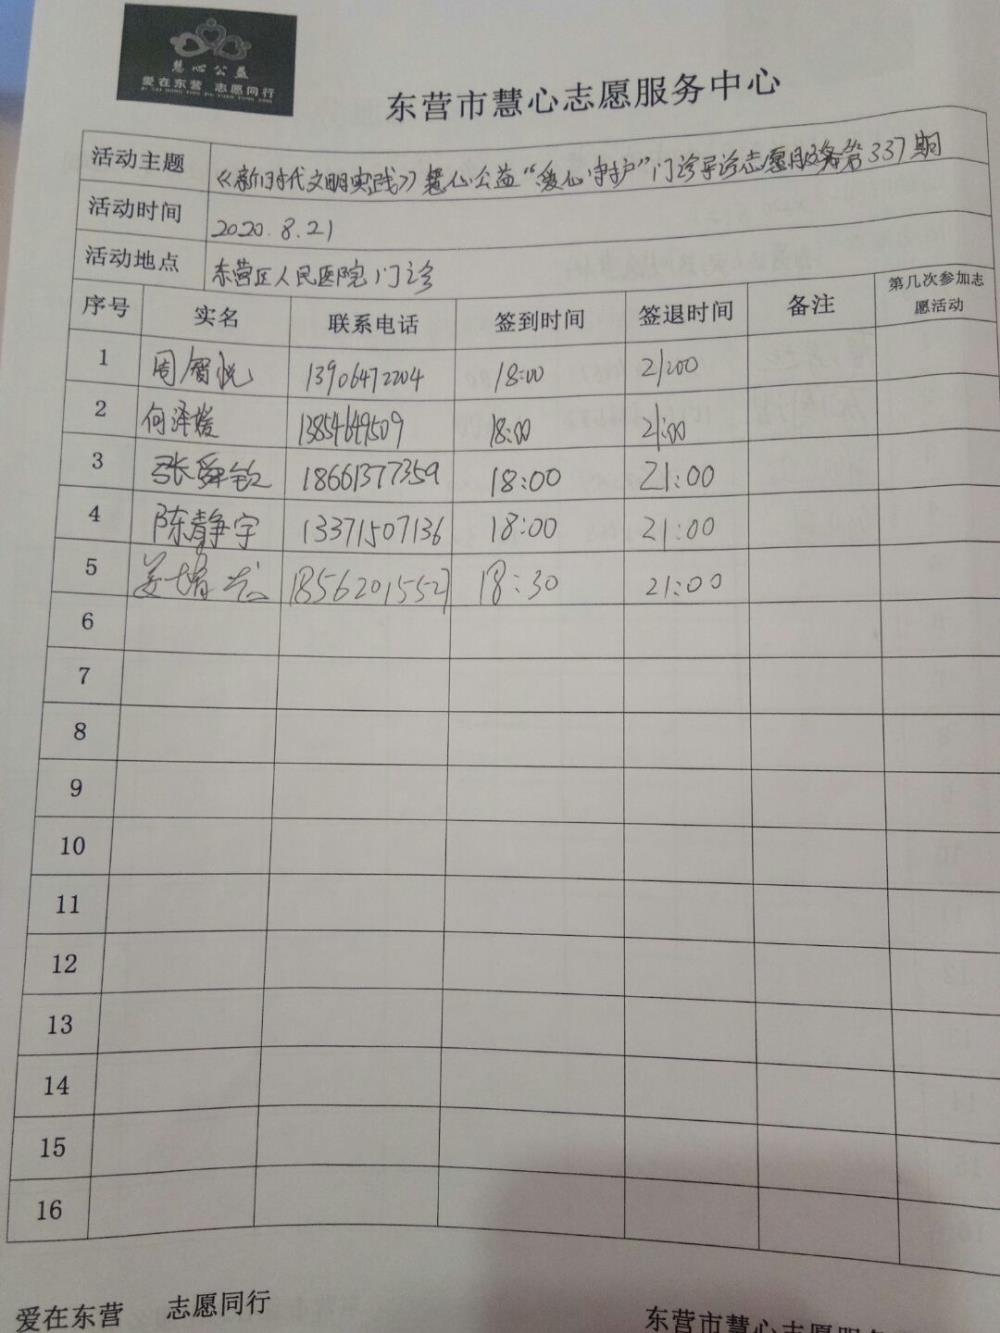 慧心公益
爱在东营 志愿同行
东营市慧心志愿服务中心
活动主题 《新时代文明实践》慧心公益“爱心守护”门诊导诊志愿服务第337期
活动时间 2020.8.21
活动地点 东营区人民医院门诊
序号 实名 联系电话 签到时间 签退时间 备注 第几次参加志愿活动
1 周智悦 13906472204 18:00 21:00
2 何泽媛 13854649509 18:00 21:00
3 张舜钦 18661377359 18:00 21:00
4 陈静宇 13371507136 18:00 21:00
5 18562015527 18:30 21:00
6
7
8
9
10
11
12
13
14
15
16
爱在东营 志愿同行
东营市慧心志愿服